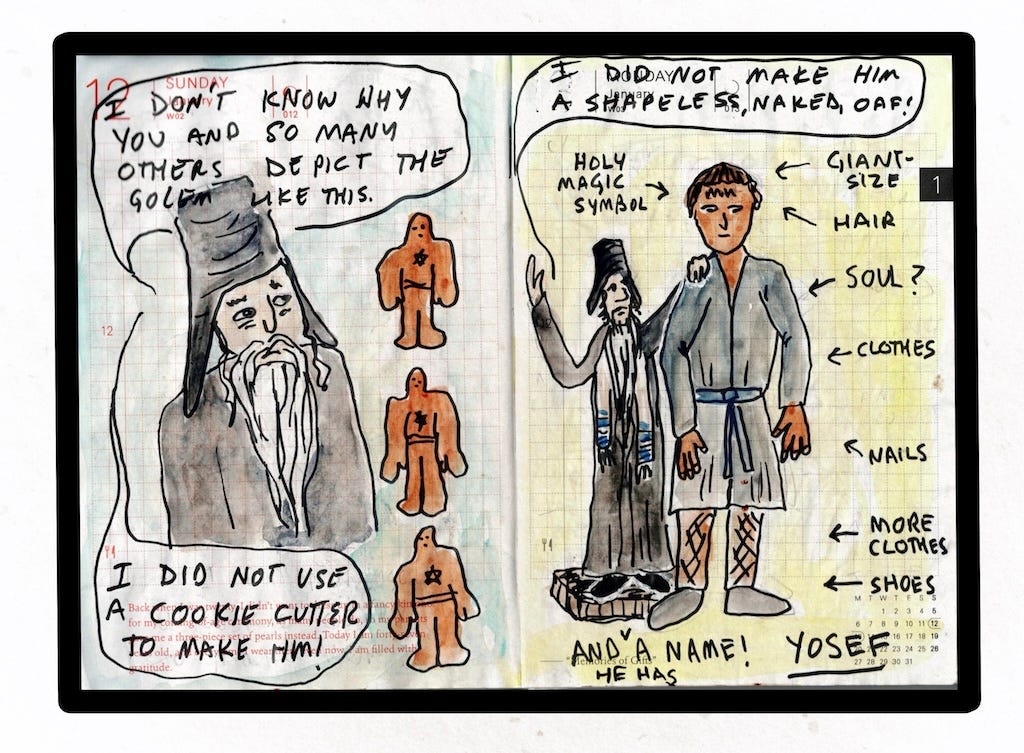 12
SUNDAY
January
W02
012
I DON'T KNOW WHY
YOU AND SO MANY
OTHERS DEPICT THE
GOLEM LIKE THIS.
12
I DID NOT USE
A COOKIE CUTTER
TO MAKE HIM!
Back when I was twenty, I didn't want a fancy
for my coming-of-age
me a three-piece set of pearls instead. Today I am
old, wear now, I am filled with
gratitude.
MONDAY
January
W03
013
I DID NOT MAKE HIM
A SHAPELESS, NAKED, OAF!
1
HOLY
MAGIC
SYMBOL
GIANT-
SIZE
HAIR
SOUL?
CLOTHES
12
NAILS
MORE
CLOTHES
SHOES
M T W T F S S
1 2 3 4 5
6 7 8 9 10 11 12
13 14 15 16 17 18 19
20 21 22 23 24 25 26
27 28 29 30 31
AND ˅ A NAME! YOSEF
HE HAS
— "Memories of Gifts"